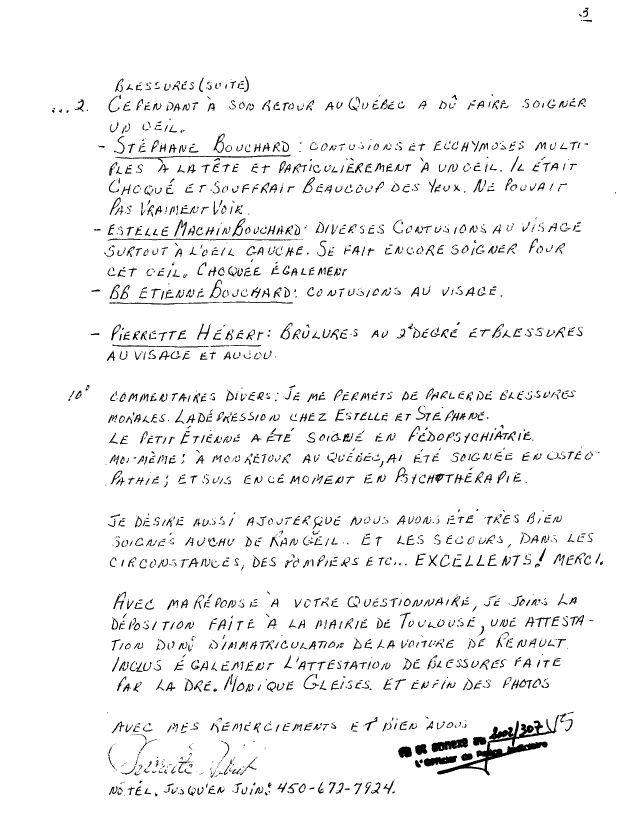 3
BLESSURES (SUITE)
...2. CEPENDANT À SON RETOUR AU QUÉBEC A DÛ FAIRE SOIGNER
UN OEIL.
- STÉPHANE BOUCHARD : CONTUSIONS ET ECCHYMOSES MULTI-
PLES À LA TÊTE ET PARTICULIÈREMENT À UN OEIL. IL ÉTAIT
CHOQUÉ ET SOUFFRAIT BEAUCOUP DES YEUX. NE POUVAIT
PAS VRAIMENT VOIR.
- ESTELLE MACHINBOUCHARD: DIVERSES CONTUSIONS AU VISAGE
SURTOUT À L'OEIL GAUCHE. SE FAIT ENCORE SOIGNER POUR
CET OEIL. CHOQUÉE ÉGALEMENT
- BB ETIENNE BOUCHARD: CONTUSIONS AU VISAGE.
- PIERRETTE HÉBERT: BRÛLURES AU 2e DEGRÉ ET BLESSURES
AU VISAGE ET AU COU.
10° COMMENTAIRES DIVERS: JE ME PERMETS DE PARLER DE BLESSURES
MORALES. LA DÉPRESSION CHEZ ESTELLE ET STÉPHANE.
LE PETIT ÉTIENNE A ÉTÉ SOIGNÉ EN PÉDOPSYCHIÂTRIE.
MOI-MÊME: À MON RETOUR AU QUÉBEC, AI ÉTÉ SOIGNÉE EN OSTÉO-
PATHIE; ET SUIS EN CE MOMENT EN PSYCHOTHÉRAPIE.
JE DÉSIRE AUSSI AJOUTER QUE NOUS AVONS ÉTÉ TRÈS BIEN
SOIGNÉS AU CHU DE RANGEIL. ET LES SECOURS, DANS LES
CIRCONSTANCES, DES POMPIERS ETC... EXCELLENTS! MERCI.
AVEC MA RÉPONSE À VOTRE QUESTIONNAIRE, JE JOINS LA
DÉPOSITION FAITE À LA MAIRIE DE TOULOUSE, UNE ATTESTA-
TION DU Nº D'IMMATRICULATION DE LA VOITURE DE RENAULT.
INCLUS ÉGALEMENT L'ATTESTATION DE BLESSURES FAITE
PAR LA DRE. MONIQUE GLEISES. ET ENFIN DES PHOTOS
AVEC MES REMERCIEMENTS ET BIEN À VOUS
2002/307/V5
L'Officier de Police Judiciaire
Nº TÉL. JUSQU'EN JUIN: 450-672-7924.